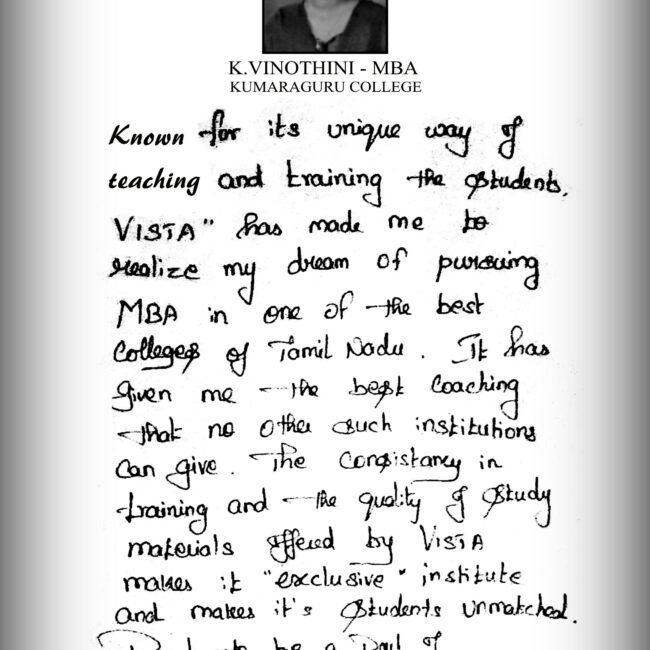 K.VINOTHINI - MBA
KUMARAGURU COLLEGE
Known for its unique way of
teaching and training the students.
VISTA" has made me to
realize my dream of pursuing
MBA in one of the best
Colleges of Tamil Nadu. It has
given me the best coaching
that no other such institutions
can give. The consistancy in
training and the quality of study
materials offered by VISTA
makes it "exclusive" institute
and makes it's students unmatched.
to be a part of